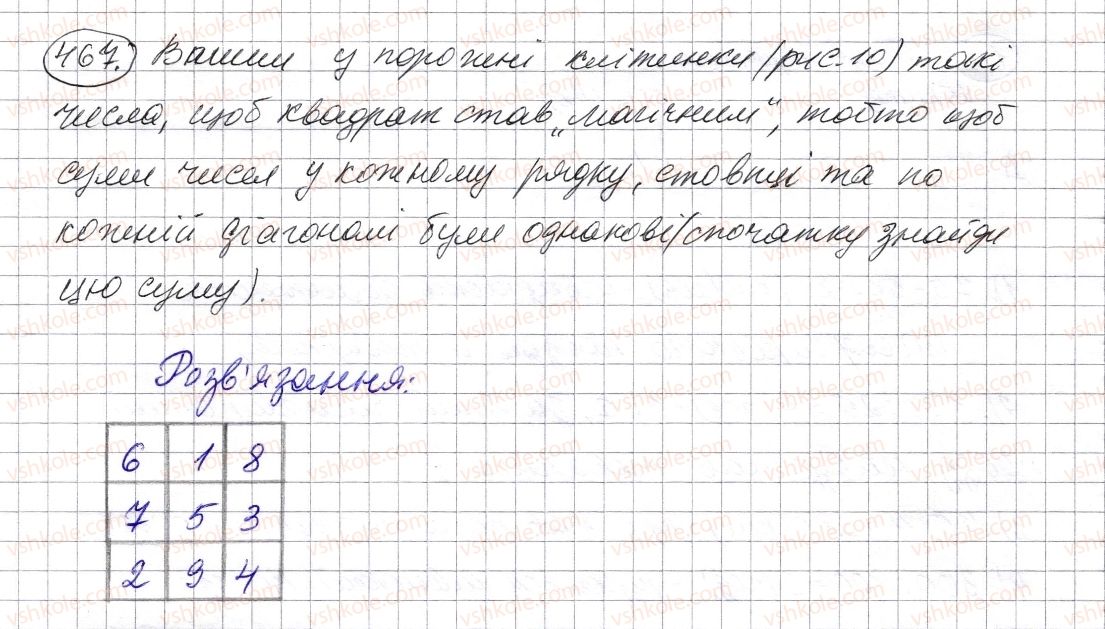 467. Впиши у порожні клітинки (рис. 10) такі
числа, щоб квадрат став „магічним“, тобто щоб
суми чисел у кожному рядку, стовпці та по
кожній діагоналі були однакові (спочатку знайди
цю суму).
Розв'язання:
6 1 8
7 5 3
2 9 4